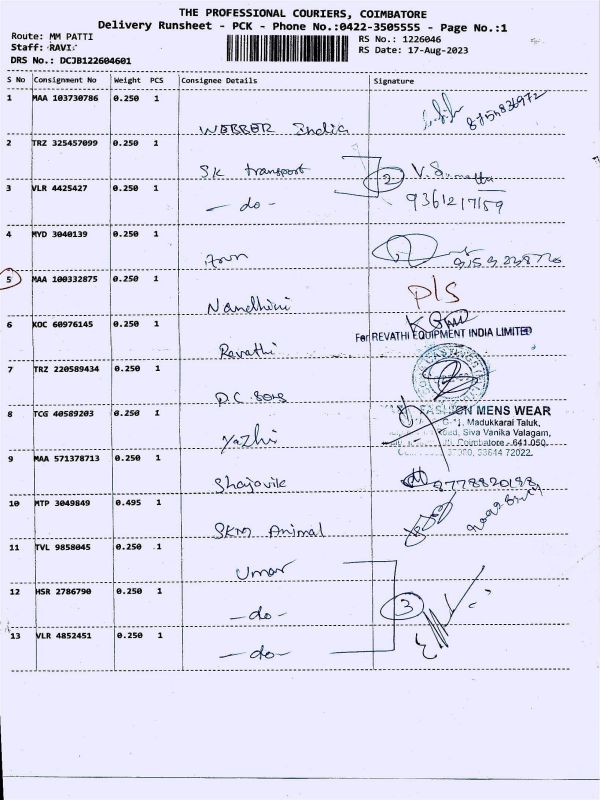 THE PROFESSIONAL COURIERS, COIMBATORE
Delivery Runsheet - PCK - Phone No.:0422-3505555 - Page No.:1
Route: MM PATTI
Staff: RAVI
DRS No.: DCJB122604601
RS No.: 1226046
RS Date: 17-Aug-2023
S No Consignment No Weight PCS Consignee Details Signature
1 MAA 103730786 0.250 1
WEBBER India
2 TRZ 325457099 0.250 1
SK transport 2
3 VLR 4425427 0.250 1
- do - 9361217159
4 MYD 3040139 0.250 1
Arun
5 MAA 100332875 0.250 1
Nandhini P/S
6 KOC 60976145 0.250 1
For REVATHI EQUIPMENT INDIA LIMITED
Revathi
7 TRZ 220589434 0.250 1
D.C. Sons
8 TCG 40589203 0.250 1
FASHION MENS WEAR
Madukkarai Taluk,
Siva Vanika Valagam,
Coimbatore - 641 050.
Yazhi
93644 72022.
9 MAA 571378713 0.250 1
8778820188
10 MTP 3049849 0.495 1
SKM Animal
11 TVL 9858045 0.250 1
Umar
12 HSR 2786790 0.250 1
- do - 3
13 VLR 4852451 0.250 1
- do -